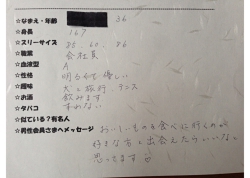 ☆なまえ・年齢 36
☆身長 167
☆スリーサイズ 88.60.86
☆職業 会社員
☆血液型 A
☆性格 明るくて優しい
☆趣味 犬と旅行、ダンス
☆お酒 飲みます
☆タバコ すわない
☆似ている?有名人
☆男性会員さまへメッセージ おいしいものを食べに行くのが
好きな方と出会えたらいいなと
思ってます